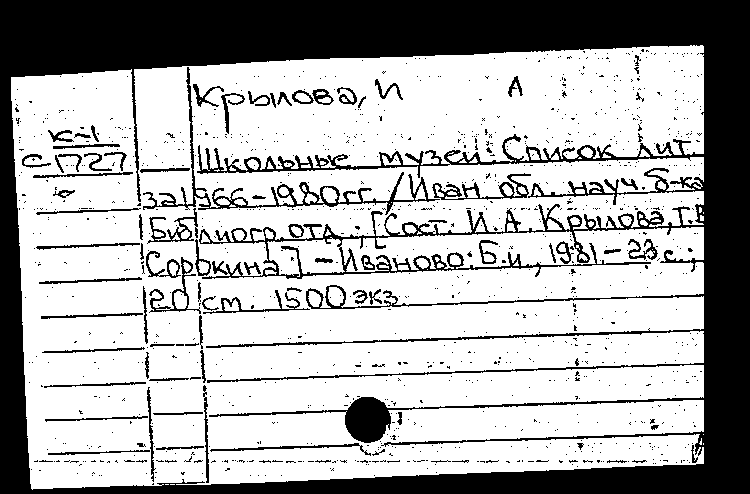 Крылова, И А
К-1
С-1727
Школьные музеи: Список лит.
за 1966-1980 гг. / Иван. обл. науч. б-ка
Библиогр. отд.; [Сост. И.А. Крылова, Т.В.
Сорокина]. - Иваново: Б.и., 1981. - 23 с.;
20 см. 1500 экз.